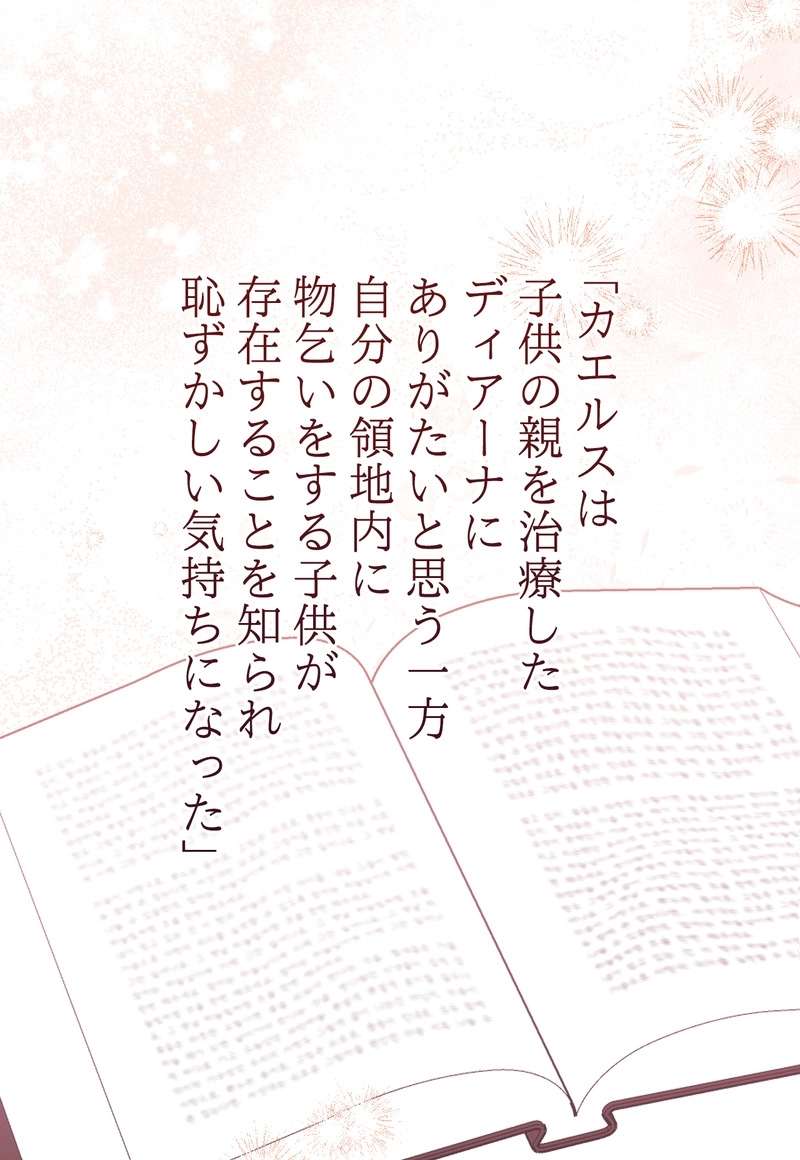 「カエルスは
子供の親を治療した
ディアーナに
ありがたいと思う一方
自分の領地内に
物乞いをする子供が
存在することを知られ
恥ずかしい気持ちになった」